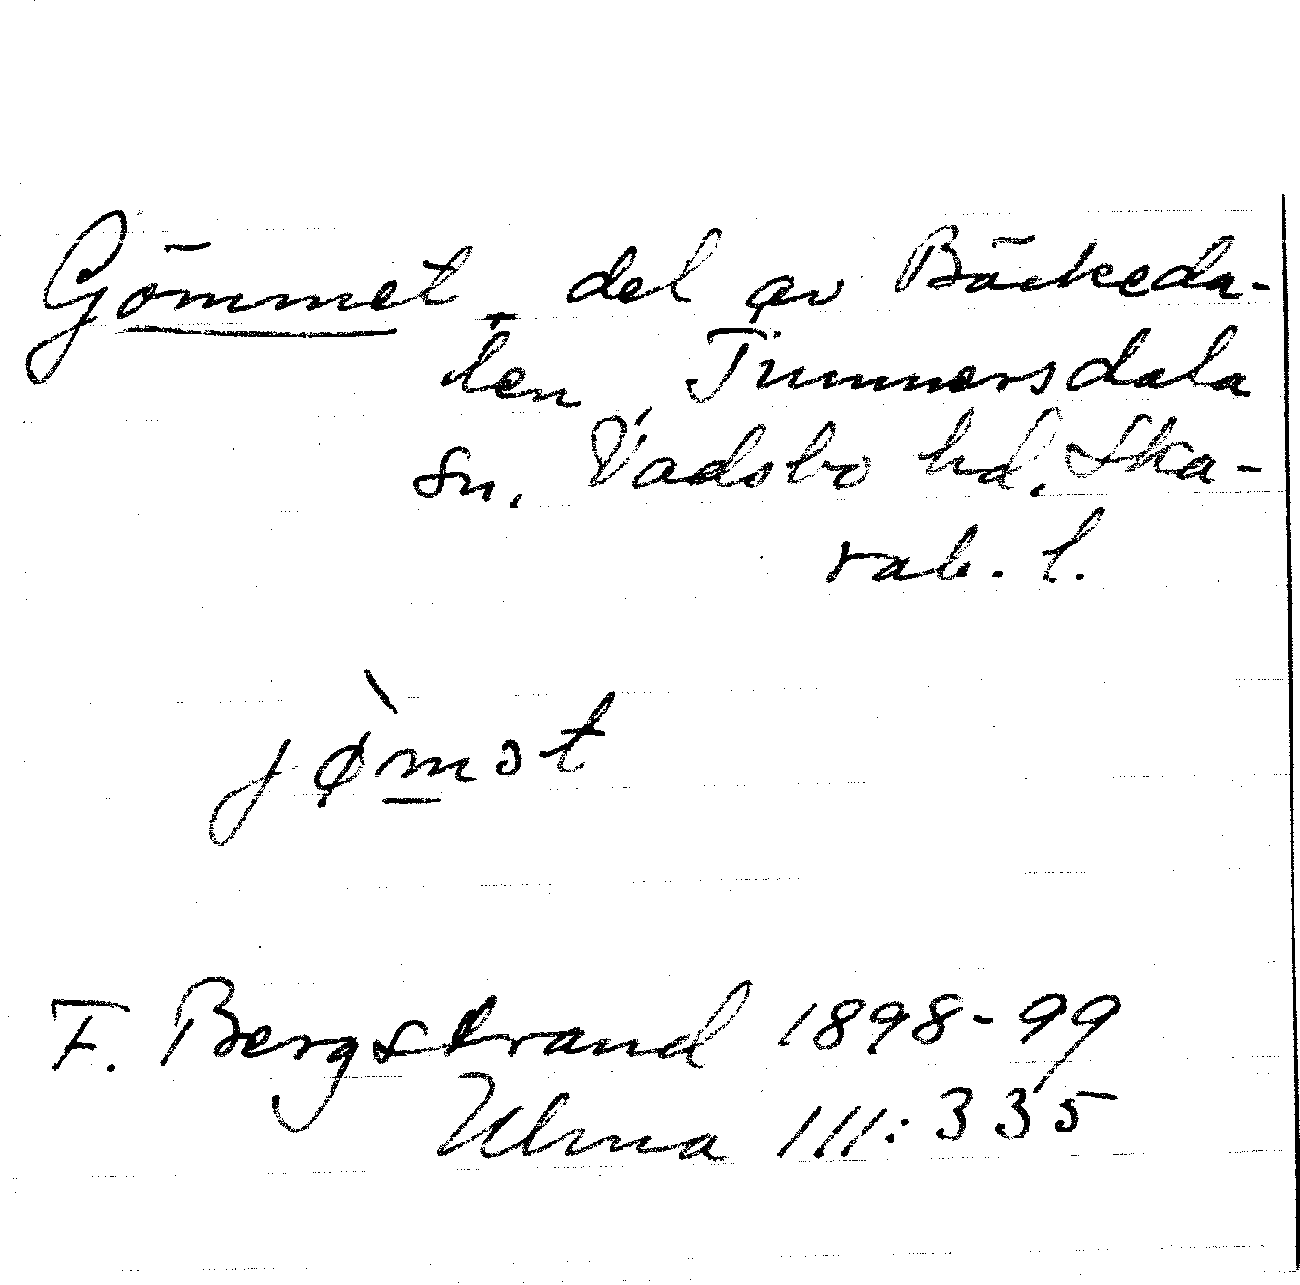 Gömmet, del av Bäckeda-
len, Timmersdala
sn. Vadsbo hd. Ska-
rab. l.
jø̀mət
F. Bergstrand 1898-99
Ulma 111:335